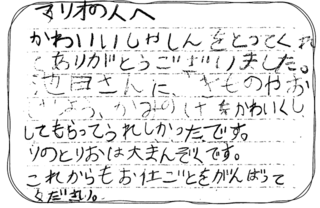 マリオの人へ
かわいいしゃしんをとってくれ
てありがとうございました。
池田さんに、きものやお
けしょう、かみのけをかわいくし
してもらってうれしかったです。
りのとりおは大まんぞくです。
これからもお仕ごとをがんばって
ください。